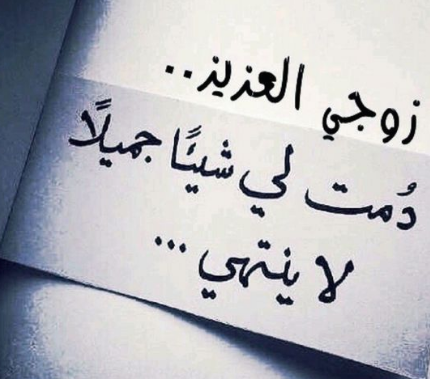 زوجي العزيز..
دُمت لي شيئًا جميلًا
لا ينتهي...